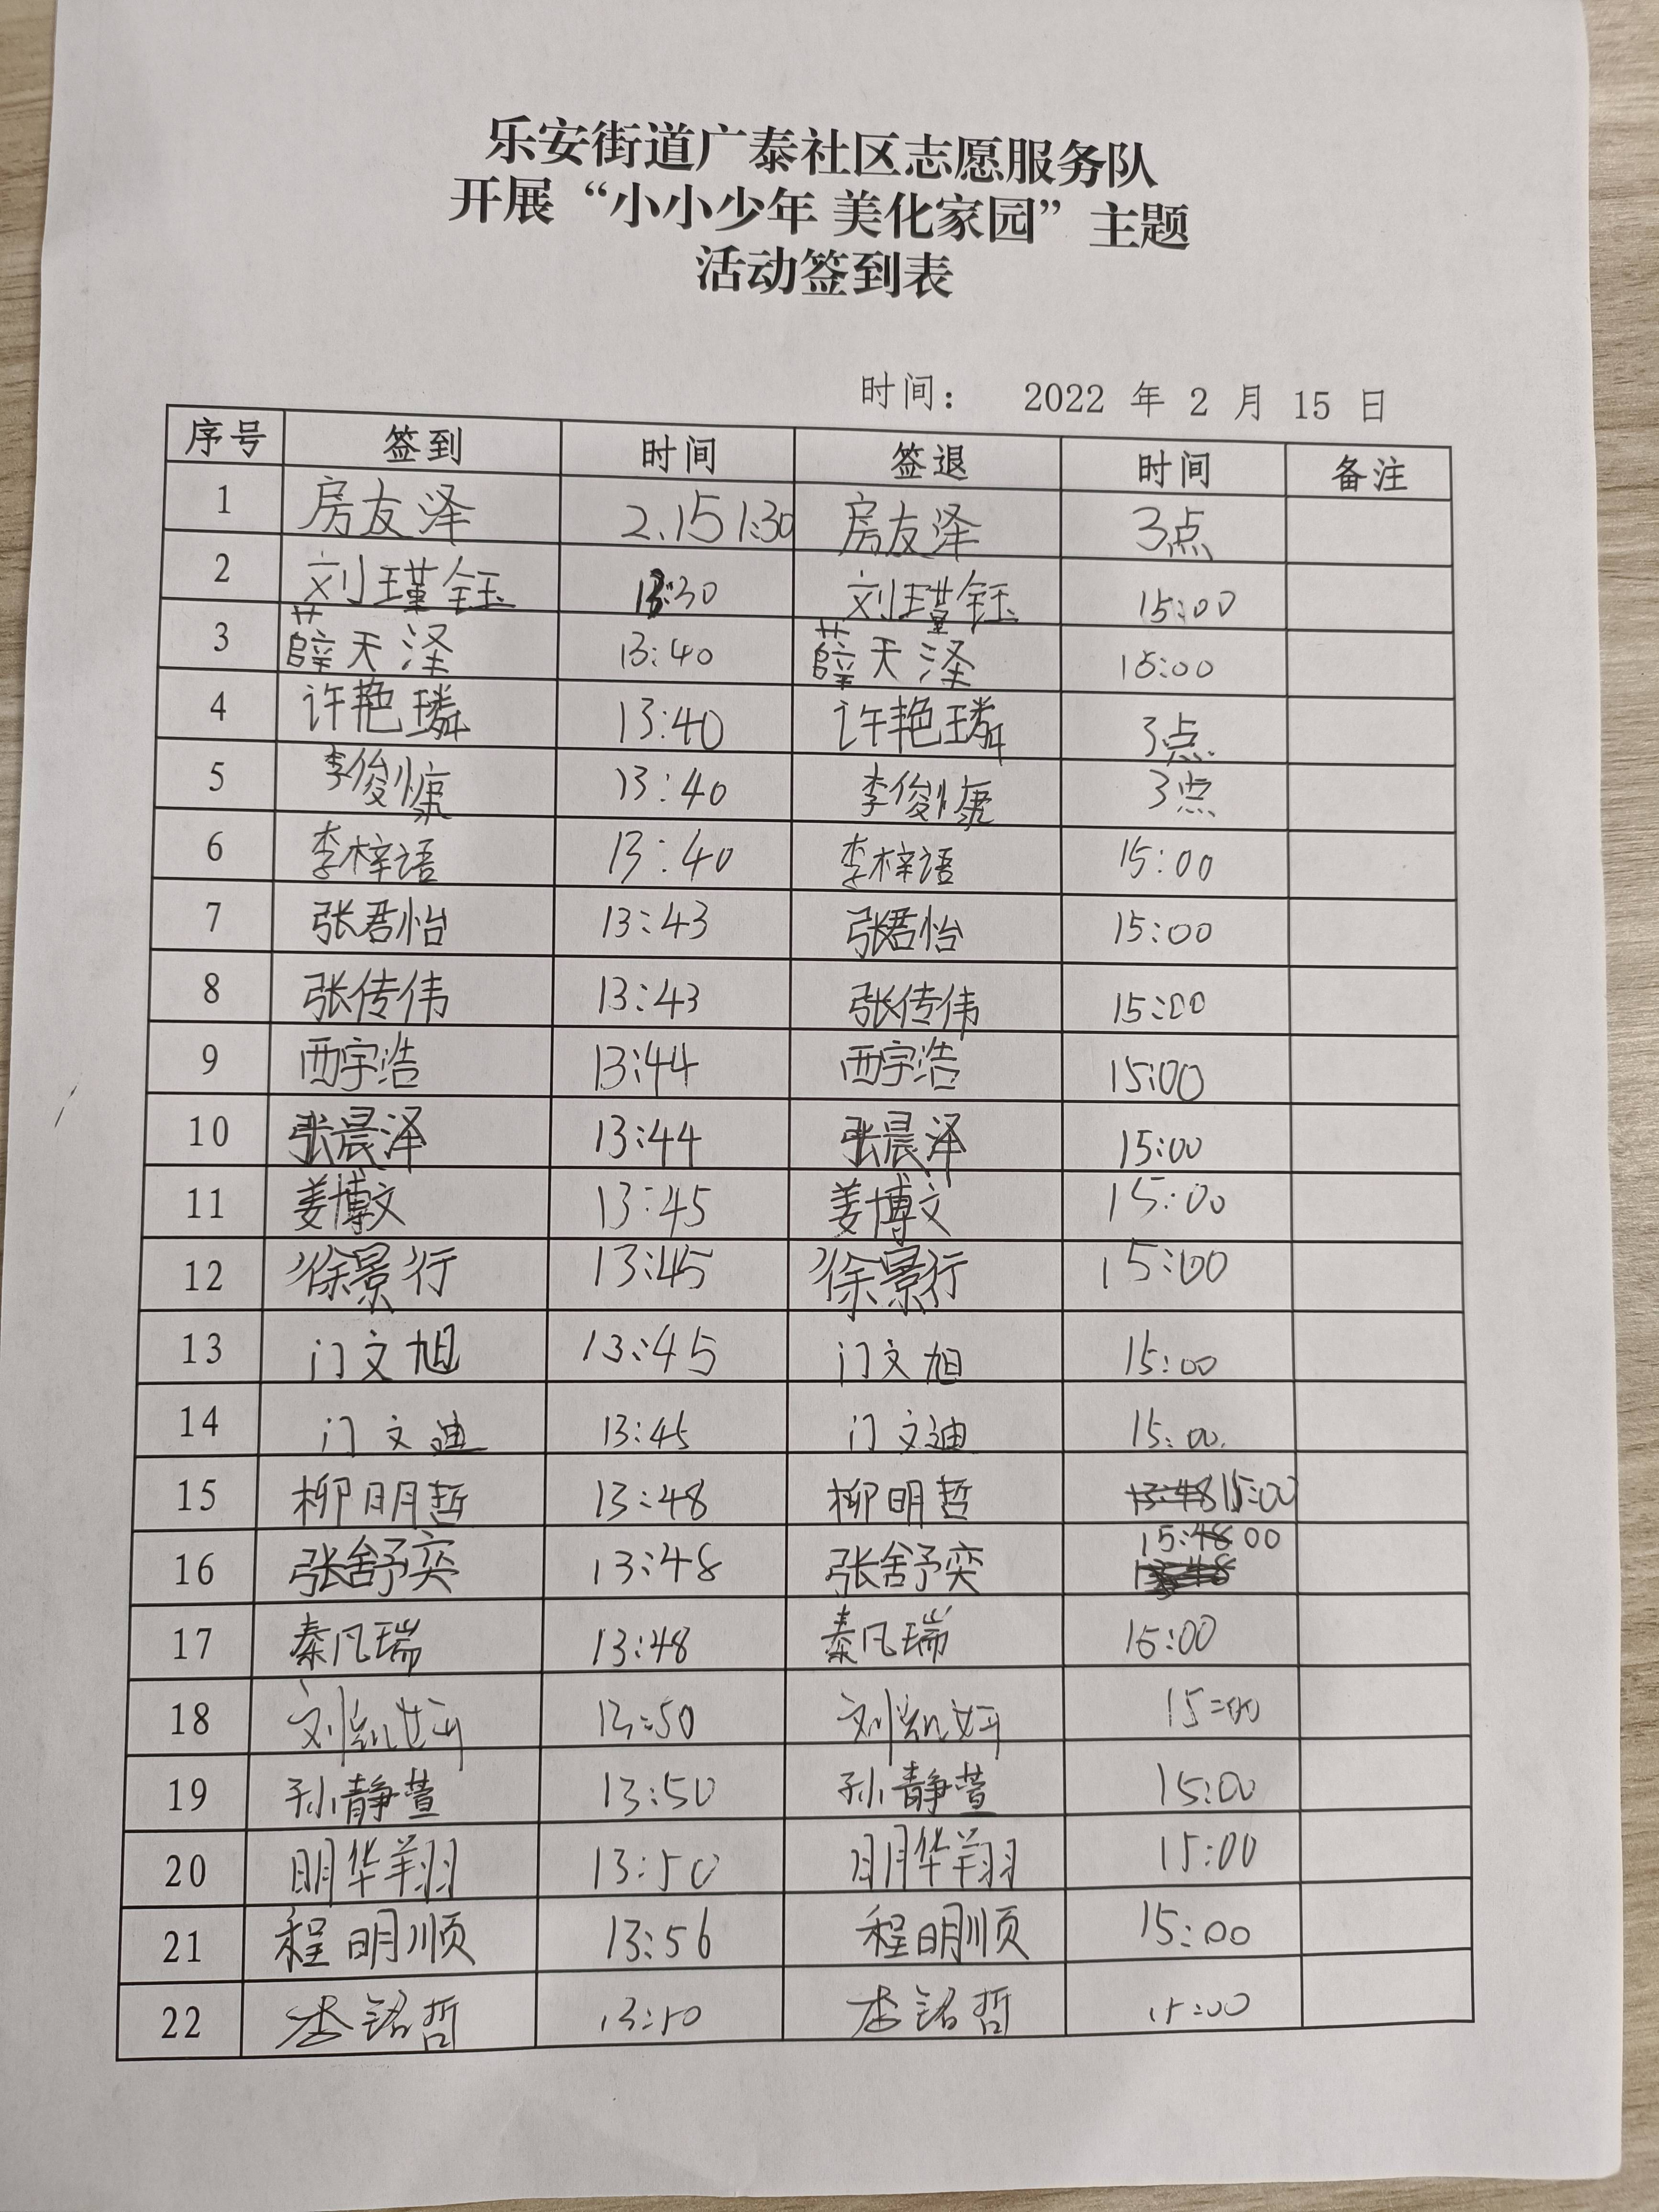 乐安街道广泰社区志愿服务队
开展“小小少年 美化家园”主题
活动签到表
时间： 2022 年 2 月 15 日
序号 签到 时间 签退 时间 备注
1 房友泽 2.15 1:30 房友泽 3点
2 刘瑾钰 13:30 刘瑾钰 15:00
3 薛天泽 13:40 薛天泽 15:00
4 许艳璘 13:40 许艳璘 3点
5 李俊慷 13:40 李俊慷 3点
6 李梓语 13:40 李梓语 15:00
7 张君怡 13:43 张君怡 15:00
8 张传伟 13:43 张传伟 15:00
9 西宇浩 13:44 西宇浩 15:00
10 张晨泽 13:44 张晨泽 15:00
11 姜博文 13:45 姜博文 15:00
12 徐景行 13:45 徐景行 15:00
13 门文旭 13:45 门文旭 15:00
14 门文迪 13:45 门文迪 15:00.
15 柳明哲 13:48 柳明哲 15:00
16 张舒奕 13:48 张舒奕 15:00
17 秦凡瑞 13:48 秦凡瑞 15:00
18 刘凯妍 13:50 刘凯妍 15:00
19 孙静萱 13:50 孙静萱 15:00
20 明华翔 13:50 明华翔 15:00
21 程明顺 13:56 程明顺 15:00
22 李铭哲 13:50 李铭哲 15:00